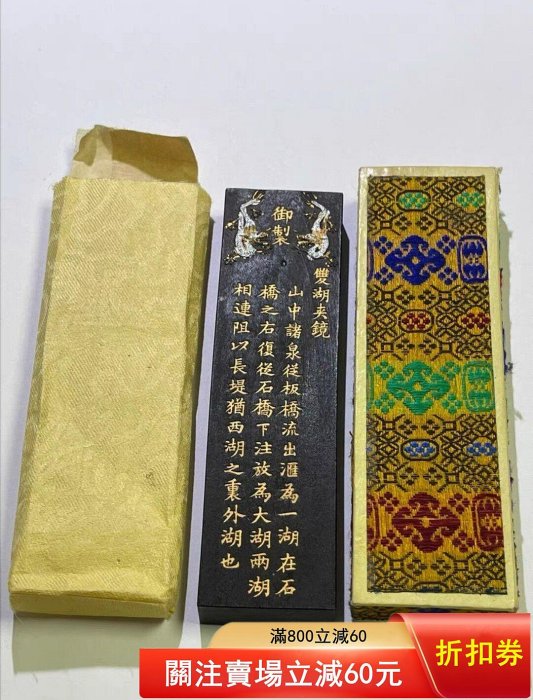 御製
雙湖夾鏡
山中諸泉從板橋流出滙為一湖在石
橋之右復從石橋下注放為大湖兩湖
相連阻以長堤猶西湖之裏外湖也
滿800立減60
關注賣場立減60元
折扣券